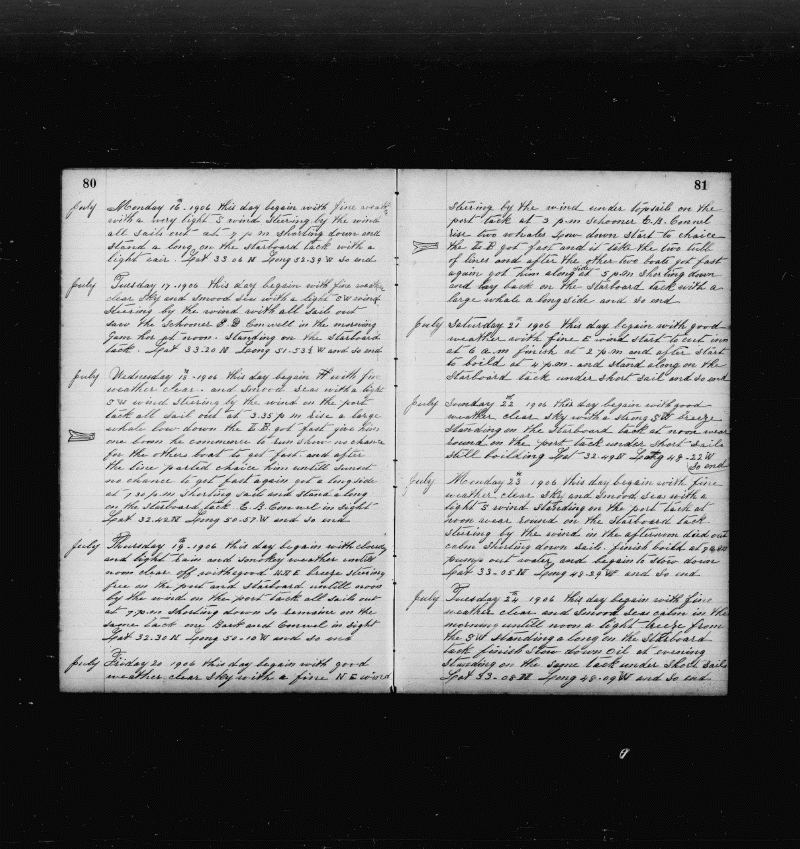 80
July Monday 16th 1906 this day begain with fine weath
with a very light S wind Steering by the wind
all Sails out at 7 p m Shorting down and
Stand a long on the Starboard tack with a
light eair. Lat 33-06 N Long 52-39 W So end
July Tuesday 17-1906 this day begain with fine weathe
clear Sky and Smood Sea with a light SW wind
Steering by the wind with all Sail out
Saw the Schooner E B Conwell in the morning
Gam her at noon. Standing on the Starboard
tack. Lat 33-20 N Long 51-53½ W and So end
July Wednesday 18th-1906 this day begain with fine
weather clear. and Smood Seas with a light
SW wind Steering by the wind on the port
tack all Sail out at 3.35 p m rise a large
whale low down the L.B. got fast give him
one bomb he commence to run Show no chance
for the others boat to get fast. and after
the line parted chaice him untill Sunset
no chance to get fast again got a longside
at 7,30 p.m Shorting Sail and Stand a long
on the Starboard tack E. B. Conwel in Sight
Lat 32-42 N Long 50-57 W and So end
July Thursday 19th-1906 this day begain with cloudy
and light rain and Smokey weather untill
noon clear off with good N.N E breeze Steering
free on the port and Starboard untill noon
by the wind on the port tack all Sail out
at 7 p.m Shorting down So remaine on the
Same tack one Bark and Conwel in Sight
Lat 32-30 N Long 50-10 W and So end
July Friday 20 1906 this day begain with good
weather clear Sky with a fine N E wind
81
Steering by the wind under topsails on the
port tack at 3 p.m Schooner E. B. Conwel
rise two whales Low down Start to chaice
the L B got fast and it take the two tubb
of lines and after the other two boats got fast
again got him along side at 5 p.m Shorting down
and lay back on the Starboard tack with a
large whale a longside and So end
July Saturday 21st 1906 this day begain with good
weather with fine E wind Start to cut inn
at 6 a.m finish at 2 p m and after Start
to boild at 4 p.m. and Stand along on the
Starboard tack under Short Sail and So end
July Sounday 22th 1906 this day begain with good
weather clear Sky with a Stong SW breeze
Standing on the Starboard tack at noon wear
round on the port tack under Short Sails
Still boilding Lat 32-49 N Long 48-22 W
So end
July Monday 23th 1906 this day begain with fine
weather clear Sky and Smood Seas with a
light S wind Standing on the port tack at
noon wear round on the Starboard tack
Steering by the wind in the afternoon died out
calm Shorting down Sails. finish boild at
pumps out water and begain to Stow down
Lat 33-05 N Long 48-39 W and So end
July Tuesday 24th 1906 this day begain with fine
weather clear and Smood Seas calm in the
morning untill noon a light breeze from
the SW Standing a long on the Starboard
tack finish Stow down Oil at evening
Standing on the Same tack under Short Sails
Lat 33-08 N Long 48-09 W and So end